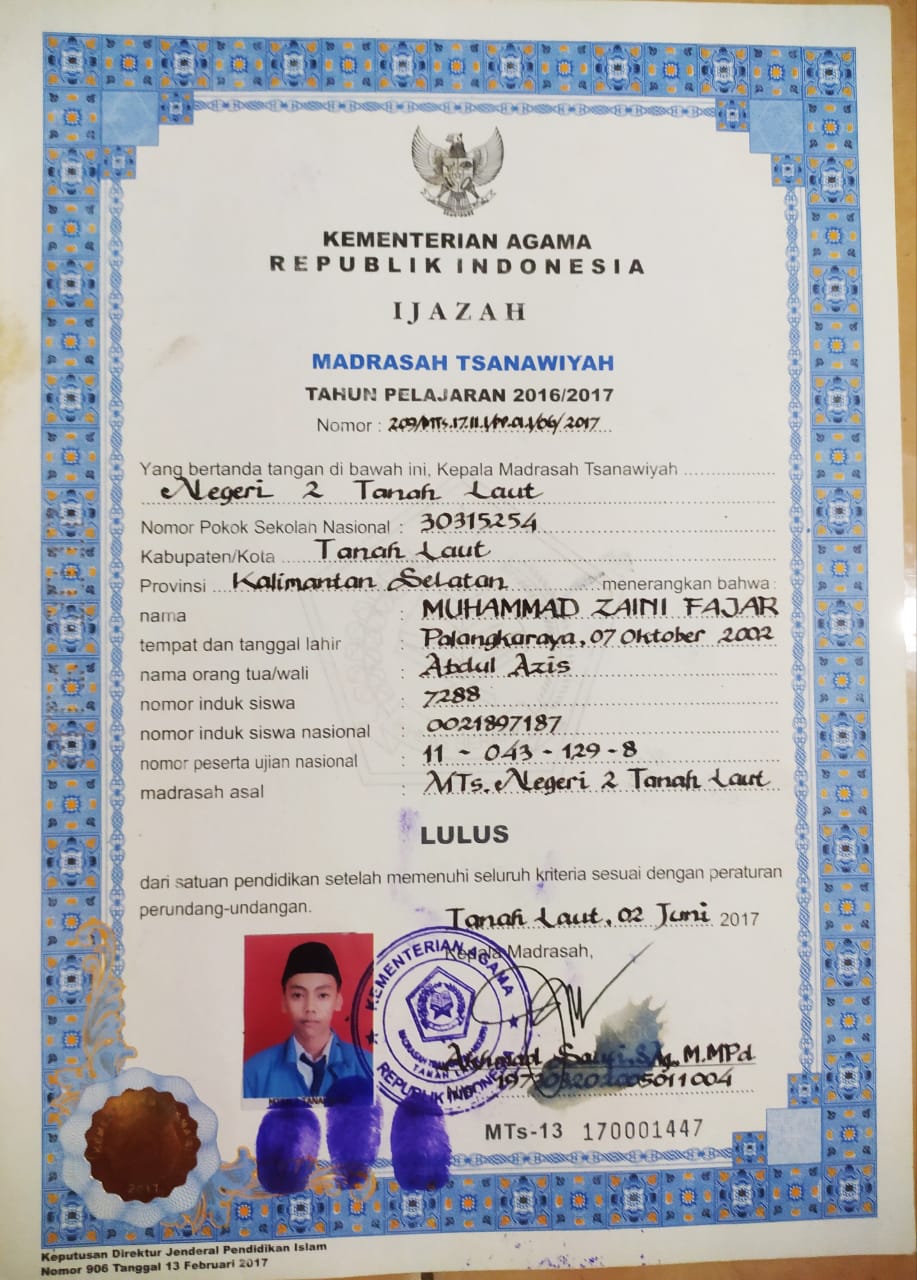 KEMENTERIAN AGAMA
REPUBLIK INDONESIA
IJAZAH
MADRASAH TSANAWIYAH
TAHUN PELAJARAN 2016/2017
Nomor : 209/MTs.17.11.1/PP.01.1/06/2017
Yang bertanda tangan di bawah ini, Kepala Madrasah Tsanawiyah
Negeri 2 Tanah Laut
Nomor Pokok Sekolah Nasional : 30315254
Kabupaten/Kota Tanah Laut
Provinsi Kalimantan Selatan menerangkan bahwa :
nama : MUHAMMAD ZAINI FAJAR
tempat dan tanggal lahir : Palangkaraya, 07 Oktober 2002
nama orang tua/wali : Abdul Azis
nomor induk siswa : 7288
nomor induk siswa nasional : 0021897187
nomor peserta ujian nasional : 11 - 043 - 129 - 8
madrasah asal : MTs. Negeri 2 Tanah Laut
LULUS
dari satuan pendidikan setelah memenuhi seluruh kriteria sesuai dengan peraturan
perundang-undangan.
Tanah Laut, 02 Juni 2017
Kepala Madrasah,
KEMENTERIAN AGAMA
TANAH LAUT
REPUBLIK INDONESIA
Akhmad S.Ag, M.MPd
MTs-13 170001447
2017
Keputusan Direktur Jenderal Pendidikan Islam
Nomor 906 Tanggal 13 Februari 2017